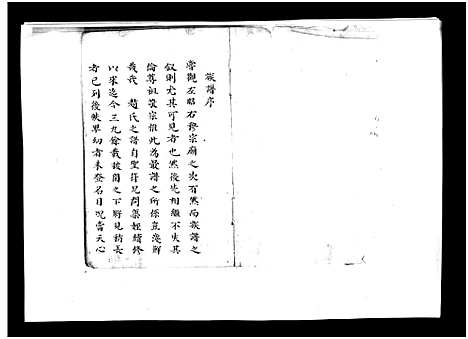 族譜序
嘗觀左昭右穆宗廟之次有然而族譜之
叙則尤其可見者也然後先相繼不失其
倫尊祖敬宗惟此為最譜之所係豈淺鮮
哉我 趙氏之譜自聖符兄問渠姪續修
以來迄今三九餘載披閱之下將見稍長
者已列後帙畢幼者未登名目況當天心